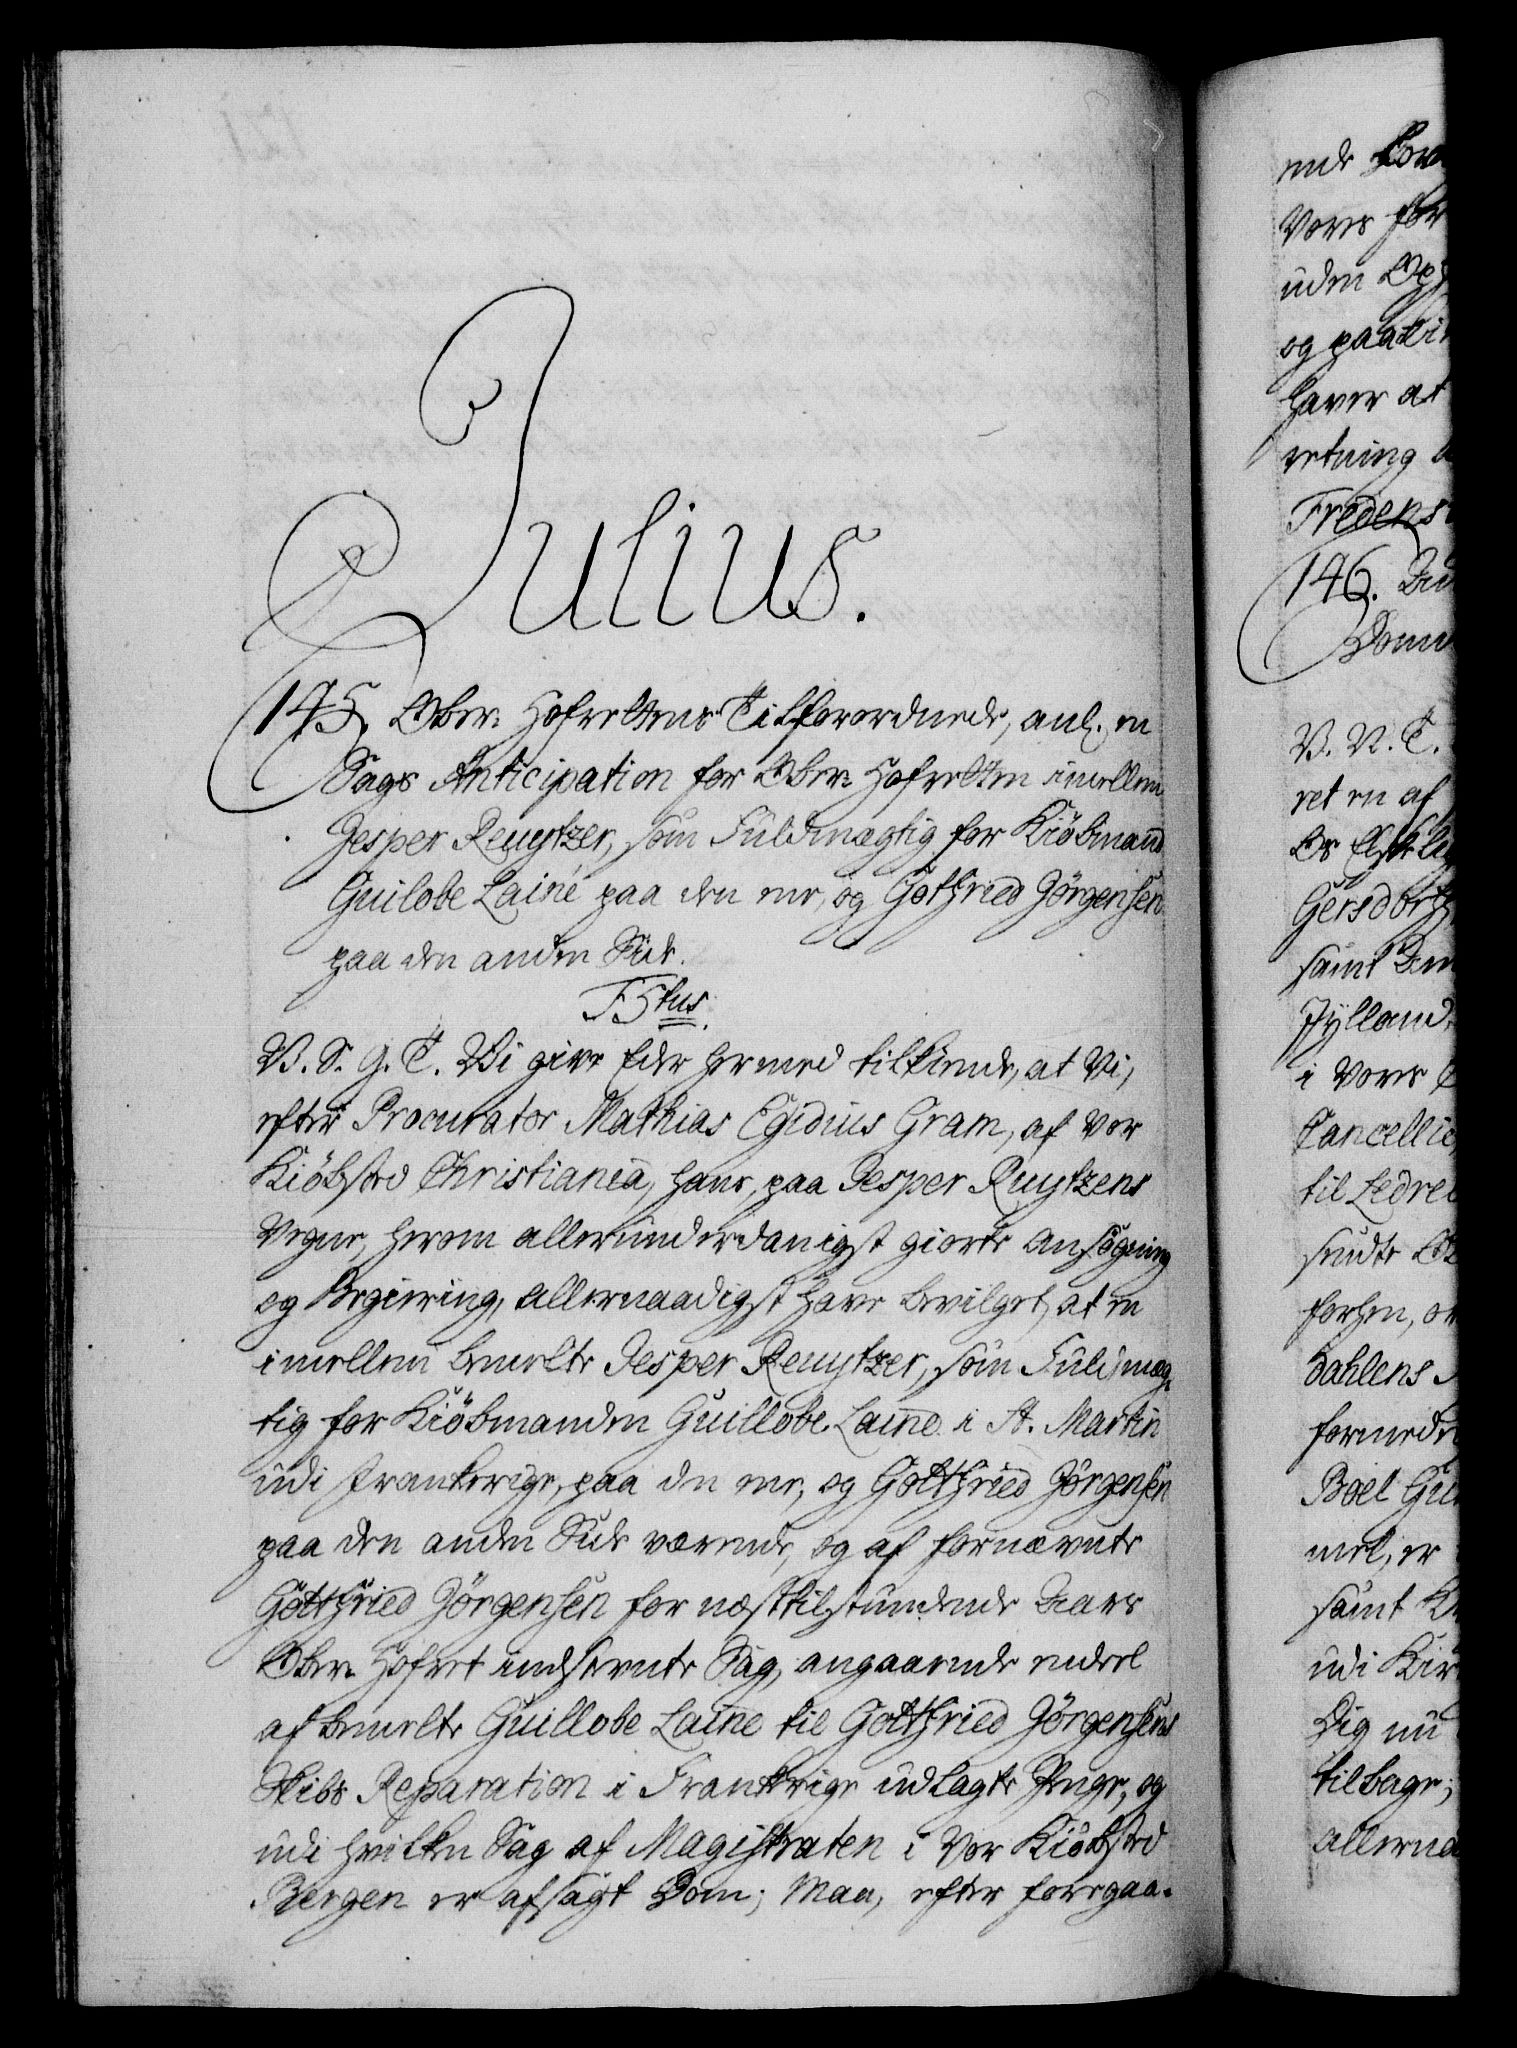 Julius.
145. Ober-Hofrettens Tilforordnede, anl. en
Sags Anticipation for Ober-Hofretten imellem
Jesper Reuytzer, som Fuldmægtig for Kiöbmand
Guilobe Lainé paa den ene, og Gotfried Jörgensen
paa den anden Side.
F5tus.
V. S. G. T. Wi give Eder hermed tilkiende, at Vi,
efter Procurator Mathias Egidius Gram, af Vor
Kiöbsted Christiania, hans, paa Jesper Ruytzens
Vegne, herom allerunderdanigst giorte Ansögning
og Begiering, allernaadigst have bevilget, at en
imellem bemelte Jesper Reuytzer, som Fuldmæg-
tig for Kiöbmanden Guillobe Laine i St. Martin
udi Frankerige, paa den ene, og Gottfried Jörgensen
paa den anden Side værende, og af fornævnte
Gottfried Jörgensen for næsttilstundende Aars
Ober-Hofret indstevnte Sag, angaaende endeel
af bemelte Guillobe Laine til Gottfried Jörgensens
Skibs Reparation i Frankrige udlagte Penge, og
udi hvilken Sag af Magistraten i Vor Kiöbsted
Bergen er afsagt Dom; Maa, efter foregaa-
ende
Vores for
uden
og paa
haver at
retning
Fredens
146.
V. V. T.
ret en af
Gersdorf
samt
Jylland
i Vores
Cancellie
til Ledre
sendte
forhen,
dahlens
formede
Boel
met, er
samt
udi
Dig nu
tilbage;
allerna